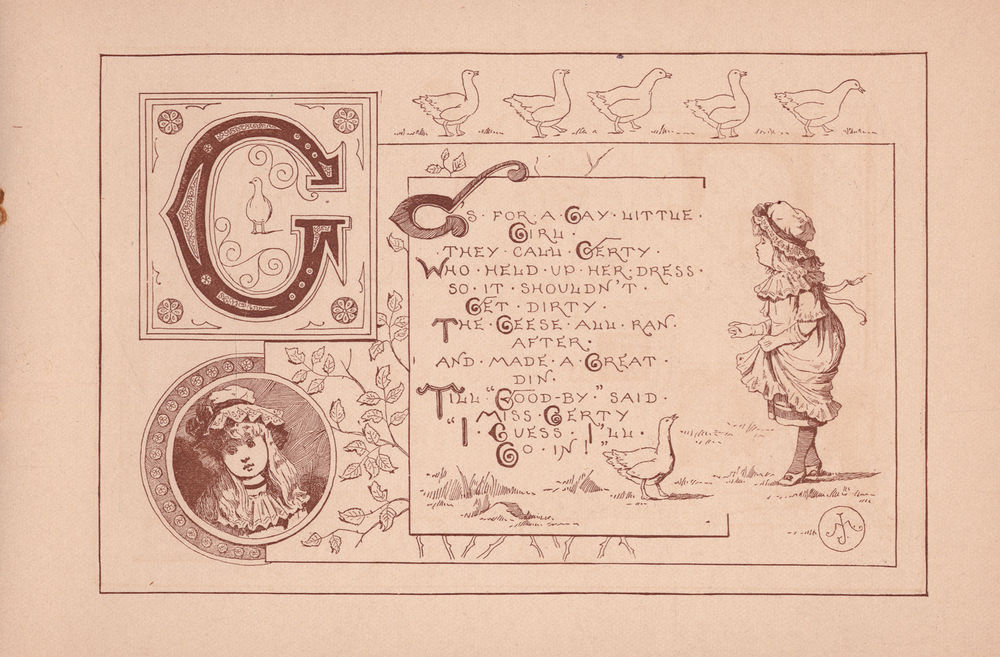 G
G'S · FOR · A · GAY · LITTLE ·
GIRL ·
· THEY · CALL · GERTY ·
WHO · HELD · UP · HER · DRESS ·
SO · IT · SHOULDN'T ·
GET · DIRTY ·
THE · GEESE · ALL · RAN ·
AFTER ·
AND · MADE · A · GREAT ·
DIN ·
TILL · "GOOD-BY" · SAID ·
· MISS · GERTY
"I · GUESS · I'LL ·
GO · IN!"